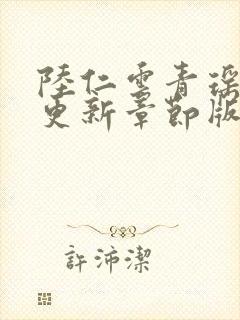 陸仁雲青瑶
更新章節版
許沛潔